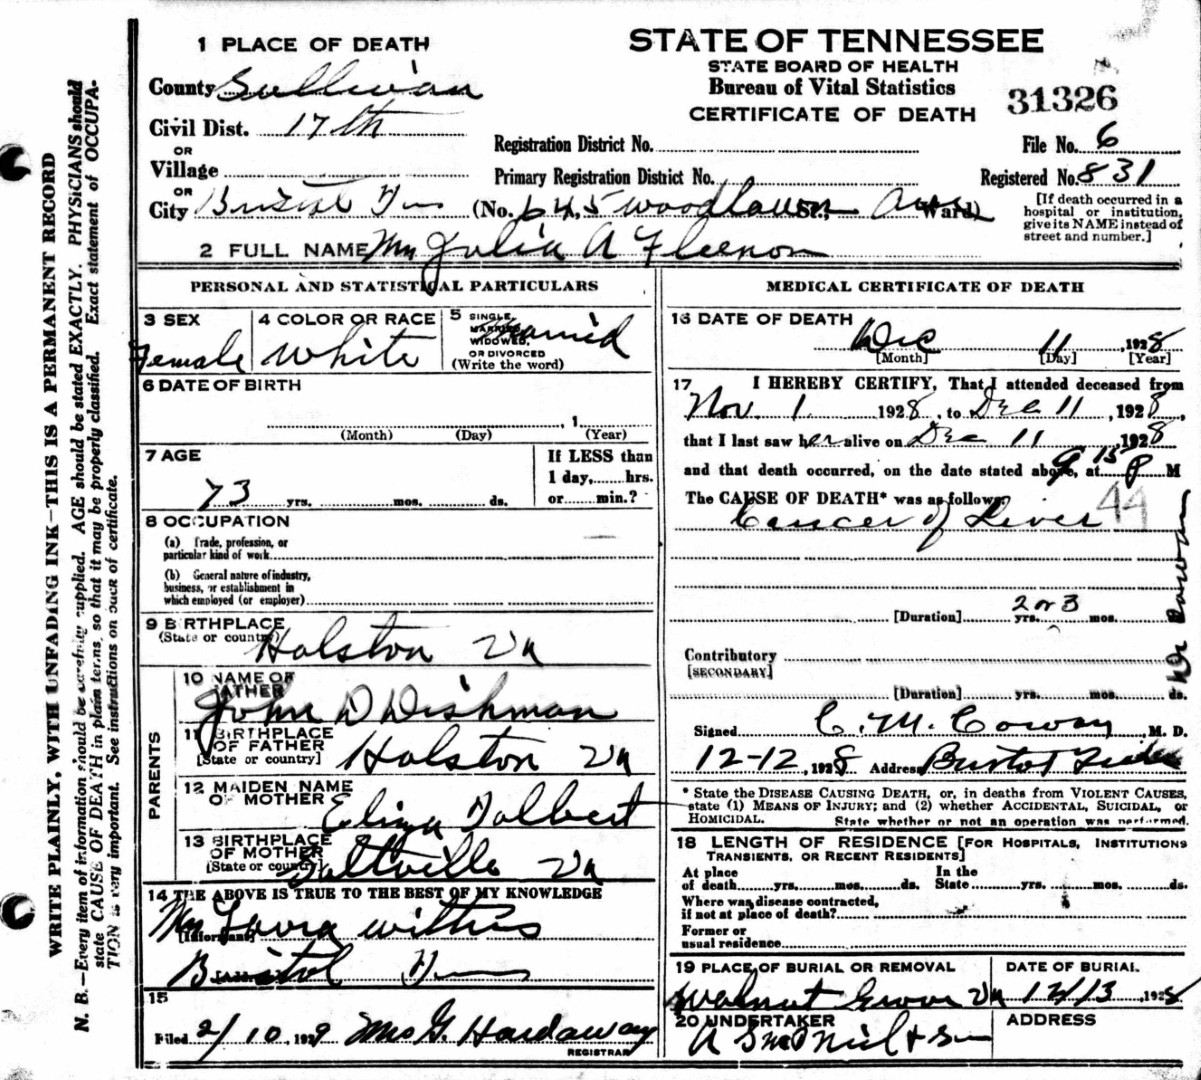 STATE OF TENNESSEE
STATE BOARD OF HEALTH
Bureau of Vital Statistics
CERTIFICATE OF DEATH
31326
File No. 6
Registered No. 831
[If death occurred in a
hospital or institution,
give its NAME instead of
street and number.]
1 PLACE OF DEATH
County Sullivan
Civil Dist. 17th
OR
Village
OR
City Bristol Tenn (No. 645 Woodlawn St.; Ave Ward)
Registration District No.
Primary Registration District No.
2 FULL NAME Mrs Julia A Fleenor
PERSONAL AND STATISTICAL PARTICULARS
3 SEX
Female
4 COLOR OR RACE
White
5 SINGLE,
MARRIED,
WIDOWED,
OR DIVORCED
(Write the word)
married
6 DATE OF BIRTH
, 1
(Month) (Day) (Year)
7 AGE
73 yrs. mos. ds.
If LESS than
1 day, hrs.
or min.?
8 OCCUPATION
(a) Trade, profession, or
particular kind of work
(b) General nature of industry,
business, or establishment in
which employed (or employer)
9 BIRTHPLACE
(State or country)
Holston Va
PARENTS
10 NAME OF
FATHER
John D Dishman
11 BIRTHPLACE
OF FATHER
[State or country]
Holston Va
12 MAIDEN NAME
OF MOTHER
Eliza Tolbert
13 BIRTHPLACE
OF MOTHER
[State or country]
Saltville Va
14 THE ABOVE IS TRUE TO THE BEST OF MY KNOWLEDGE
Mrs
[Informant]
Bristol Tenn
[Address]
15
Filed 2/10, 1929 Mrs G. Hardaway
REGISTRAR
MEDICAL CERTIFICATE OF DEATH
16 DATE OF DEATH
Dec 11, 1928
[Month] [Day] [Year]
17 I HEREBY CERTIFY, That I attended deceased from
Nov. 1 1928, to Dec 11, 1928,
that I last saw her alive on Dec 11, 1928
and that death occurred, on the date stated above, at 9 15 P M
The CAUSE OF DEATH* was as follows:
Cancer of Liver 44
[Duration] 2 or 3 yrs. mos.
Contributory
[SECONDARY]
[Duration] yrs. mos. ds.
Signed C. M. Coway, M. D.
12-12, 1928 Address Bristol
* State the DISEASE CAUSING DEATH, or, in deaths from VIOLENT CAUSES,
state (1) MEANS OF INJURY; and (2) whether ACCIDENTAL, SUICIDAL, or
HOMICIDAL. State whether or not an operation was performed.
18 LENGTH OF RESIDENCE [FOR HOSPITALS, INSTITUTIONS
TRANSIENTS, OR RECENT RESIDENTS]
At place In the
of death yrs. mos. ds. State yrs. mos. ds.
Where was disease contracted,
if not at place of death?
Former or
usual residence
19 PLACE OF BURIAL OR REMOVAL
Walnut Grove Va
DATE OF BURIAL
12/13, 1928
20 UNDERTAKER
ADDRESS
WRITE PLAINLY, WITH UNFADING INK—THIS IS A PERMANENT RECORD
N. B.—Every item of information should be carefully supplied. AGE should be stated EXACTLY. PHYSICIANS should
state CAUSE OF DEATH in plain terms, so that it may be properly classified. Exact statement of OCCUPA-
TION is very important. See instructions on back of certificate.